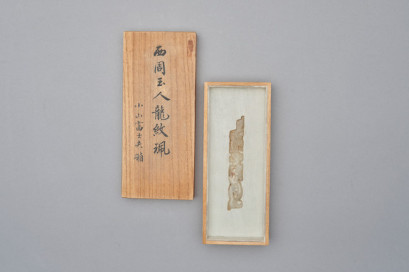 西周玉人龍紋珮
小山富士夫題